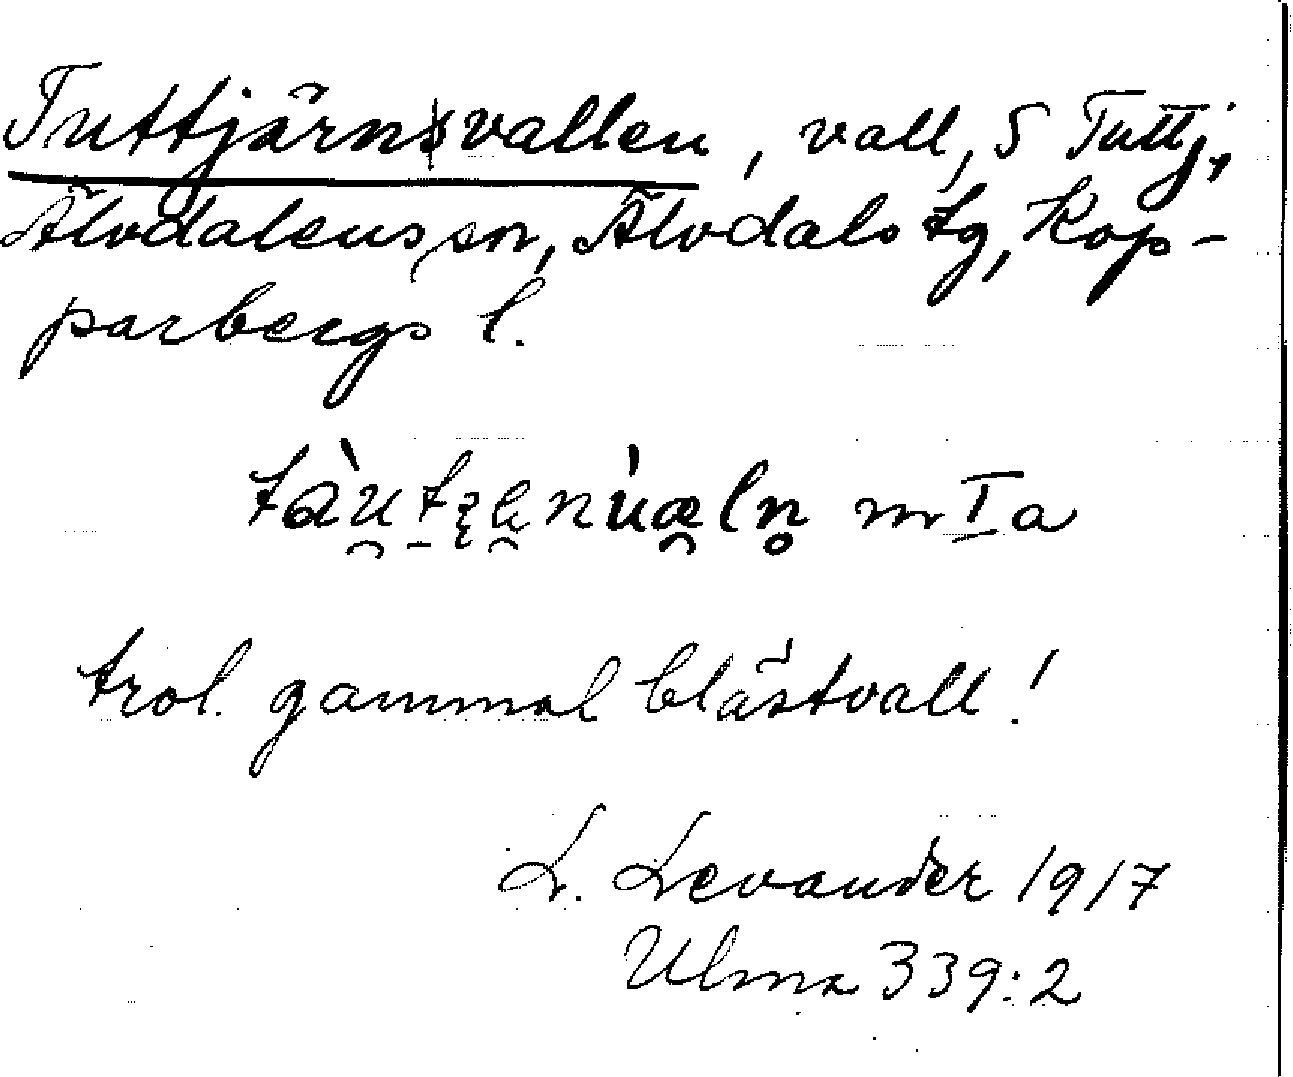 Tuttjärnsvallen, vall, S Tuttj.,
Älvdalens sn, Älvdals tg, Kop-
parbergs l.
m I a
trol. gammal blästvall!
L. Levander 1917
Ulma 339:2